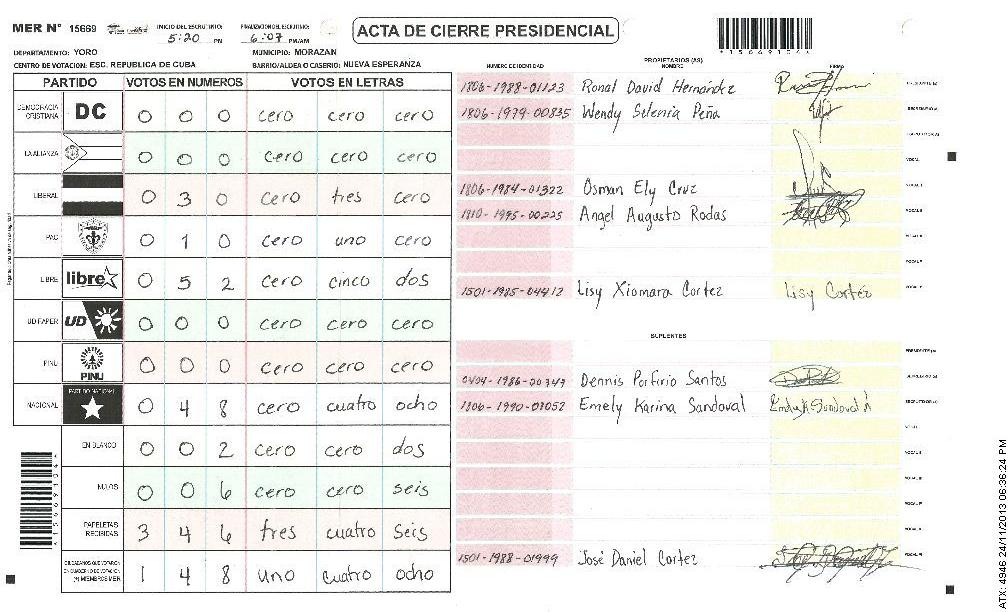 MER N° 15669
INICIO DEL ESCRUTINIO:
5:20 PM
FINALIZACION DEL ESCRUTINIO:
6:07 PM/AM
ACTA DE CIERRE PRESIDENCIAL
DEPARTAMENTO: YORO
MUNICIPIO: MORAZAN
CENTRO DE VOTACION: ESC. REPUBLICA DE CUBA
BARRIO/ALDEA O CASERIO: NUEVA ESPERANZA
PARTIDO VOTOS EN NUMEROS VOTOS EN LETRAS
DEMOCRACIA CRISTIANA DC 0 0 0 cero cero cero
LA ALIANZA 0 0 0 cero cero cero
LIBERAL 0 3 0 cero tres cero
PAC 0 1 0 cero uno cero
LIBRE libre 0 5 2 cero cinco dos
UD FAPER UD 0 0 0 cero cero cero
PINU PINU 0 0 0 cero cero cero
NACIONAL PARTIDO NACIONAL 0 4 8 cero cuatro ocho
EN BLANCO 0 0 2 cero cero dos
NULOS 0 0 6 cero cero seis
PAPELETAS RECIBIDAS 3 4 6 tres cuatro seis
CIUDADANOS QUE VOTARON EN CUADERNO DE VOTACION (+) MIEMBROS MER 1 4 8 uno cuatro ocho
NUMERO DE IDENTIDAD
PROPIETARIOS (AS)
NOMBRE
FIRMA
1806-1988-01123 Ronal David Hernández
1806-1979-00835 Wendy Selenia Peña
1806-1984-01322 Osman Ely Cruz
1810-1995-00225 Angel Augusto Rodas
1501-1985-04412 Lisy Xiomara Cortez Lisy Cortéz
SUPLENTES
0404-1986-00347 Dennis Porfirio Santos
1806-1990-03052 Emely Karina Sandoval
1501-1988-01999 José Daniel Cortez
ATX: 4946 24/11/2013 06:36:24 PM